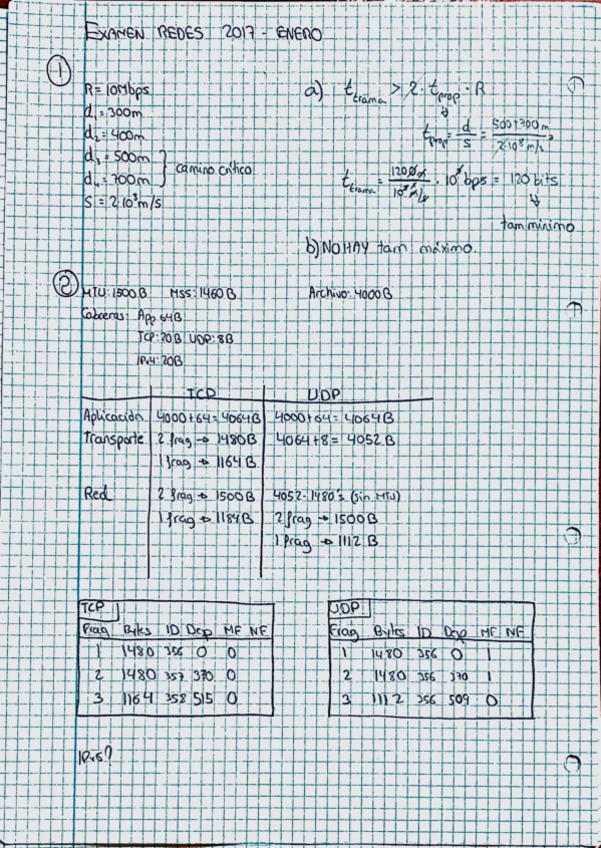 EXAMEN REDES 2017 - ENERO
1
R = 10Mbps
d₁ = 300m
d₂ = 400m
d₃ = 500m
d₄ = 700m
camino crítico
S = 2·10⁸m/s
a) t_trama > 2 · t_prop · R
t_prop = d/s = 500+700m / 2·10⁸m/s
t_trama = 1200m / 10⁸m/s · 10⁷bps = 120 bits
tam mínimo
b) NO HAY tam máximo.
2
MTU: 1500B MSS: 1460B Archivo: 4000B
Cabeceras: App 64B
TCP: 20B UDP: 8B
IPv4: 20B
TCP UDP
Aplicación 4000+64 = 4064B 4000+64 = 4064B
Transporte 2 frag → 1480B 4064+8 = 4052B
1 frag → 1164B
Red 2 frag → 1500B 4052-1480's (sin MTU)
1 frag → 1184B 2 frag → 1500B
1 frag → 1112B
TCP
Frag Bytes ID Desp MF NF
1 1480 356 0 0
2 1480 357 370 0
3 1164 358 515 0
UDP
Frag Bytes ID Desp MF NF
1 1480 356 0 1
2 1480 356 370 1
3 1112 356 509 0